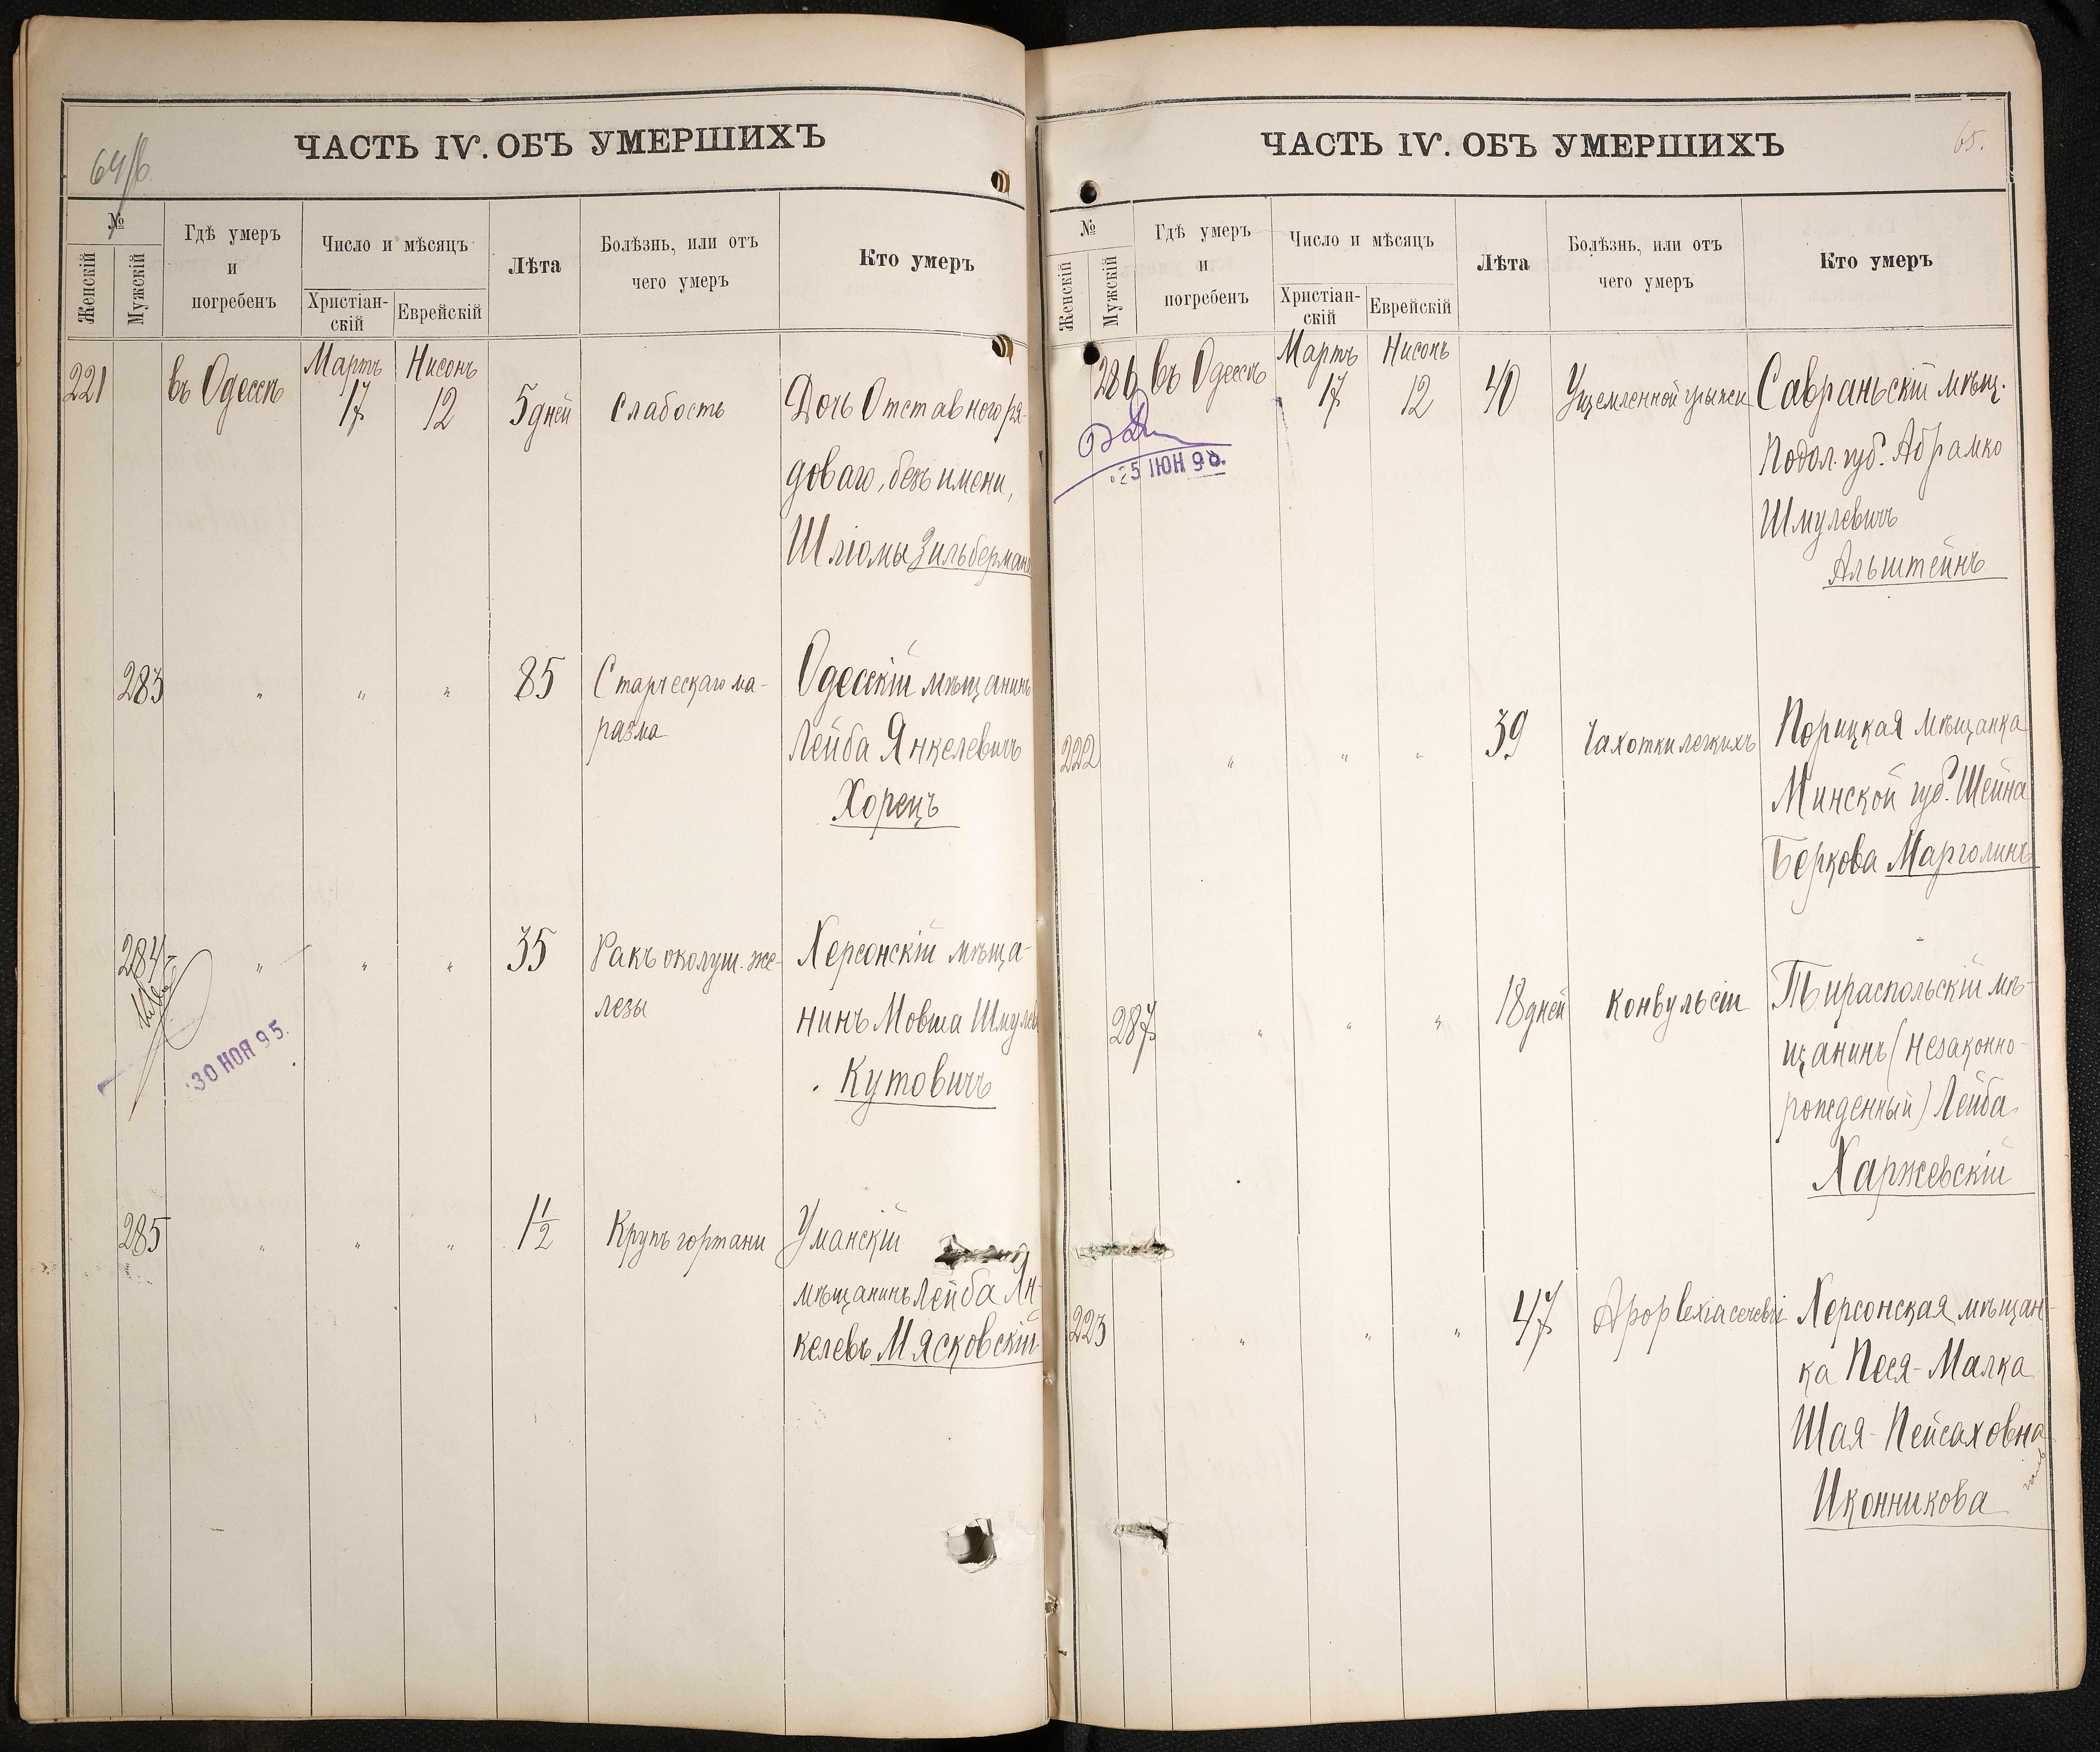 ЧАСТЬ IV. ОБЪ УМЕРШИХЪ
64/б
№
Женскій
Мужскій
Гдѣ умеръ
и
погребенъ
Число и мѣсяцъ
Христіан-
скій
Еврейскій
Лѣта
Болѣзнь, или отъ
чего умеръ
Кто умеръ
221 въ Одессѣ Мартъ 17 Нисонъ 12 5 дней Слабость Дочь Отставного ря-
доваго, безъ имени,
Шліомы Зильберманъ
283 " " " 85 Старческаго ма- Одесскій мѣщанинъ
разма Лейба Янкелевичъ
Хорецъ
284 " " " 35 Ракъ околуш. же- Херсонскій мѣща-
лезы нинъ Мовша Шмулев
30 НОЯ 95. Кутовичъ
285 " " " 1 1/2 Крупъ гортани Уманскій
мѣщанинъ Лейба Ян-
келевъ Мясковскій
ЧАСТЬ IV. ОБЪ УМЕРШИХЪ
65.
№
Женскій
Мужскій
Гдѣ умеръ
и
погребенъ
Число и мѣсяцъ
Христіан-
скій
Еврейскій
Лѣта
Болѣзнь, или отъ
чего умеръ
Кто умеръ
286 въ Одессѣ Мартъ 17 Нисонъ 12 40 Ущемленной грыжи Савраньскій мѣщ.
25 ИЮН 96. Подол. губ. Абрамко
Шмулевичъ
Альштейнъ
222 " " " 39 Чахотки легкихъ Порицкая мѣщанка
Минской губ. Шейна
Беркова Марголинъ
287 " " " 18 дней Конвульсіи Тираспольскій мѣ-
щанинъ (незаконно-
рожденный) Лейба
Харжевскій
223 " " " 47 Apoplexia cerebri Херсонская мѣщан-
ка Песя-Малка
Шая-Пейсаховна
Иконникова